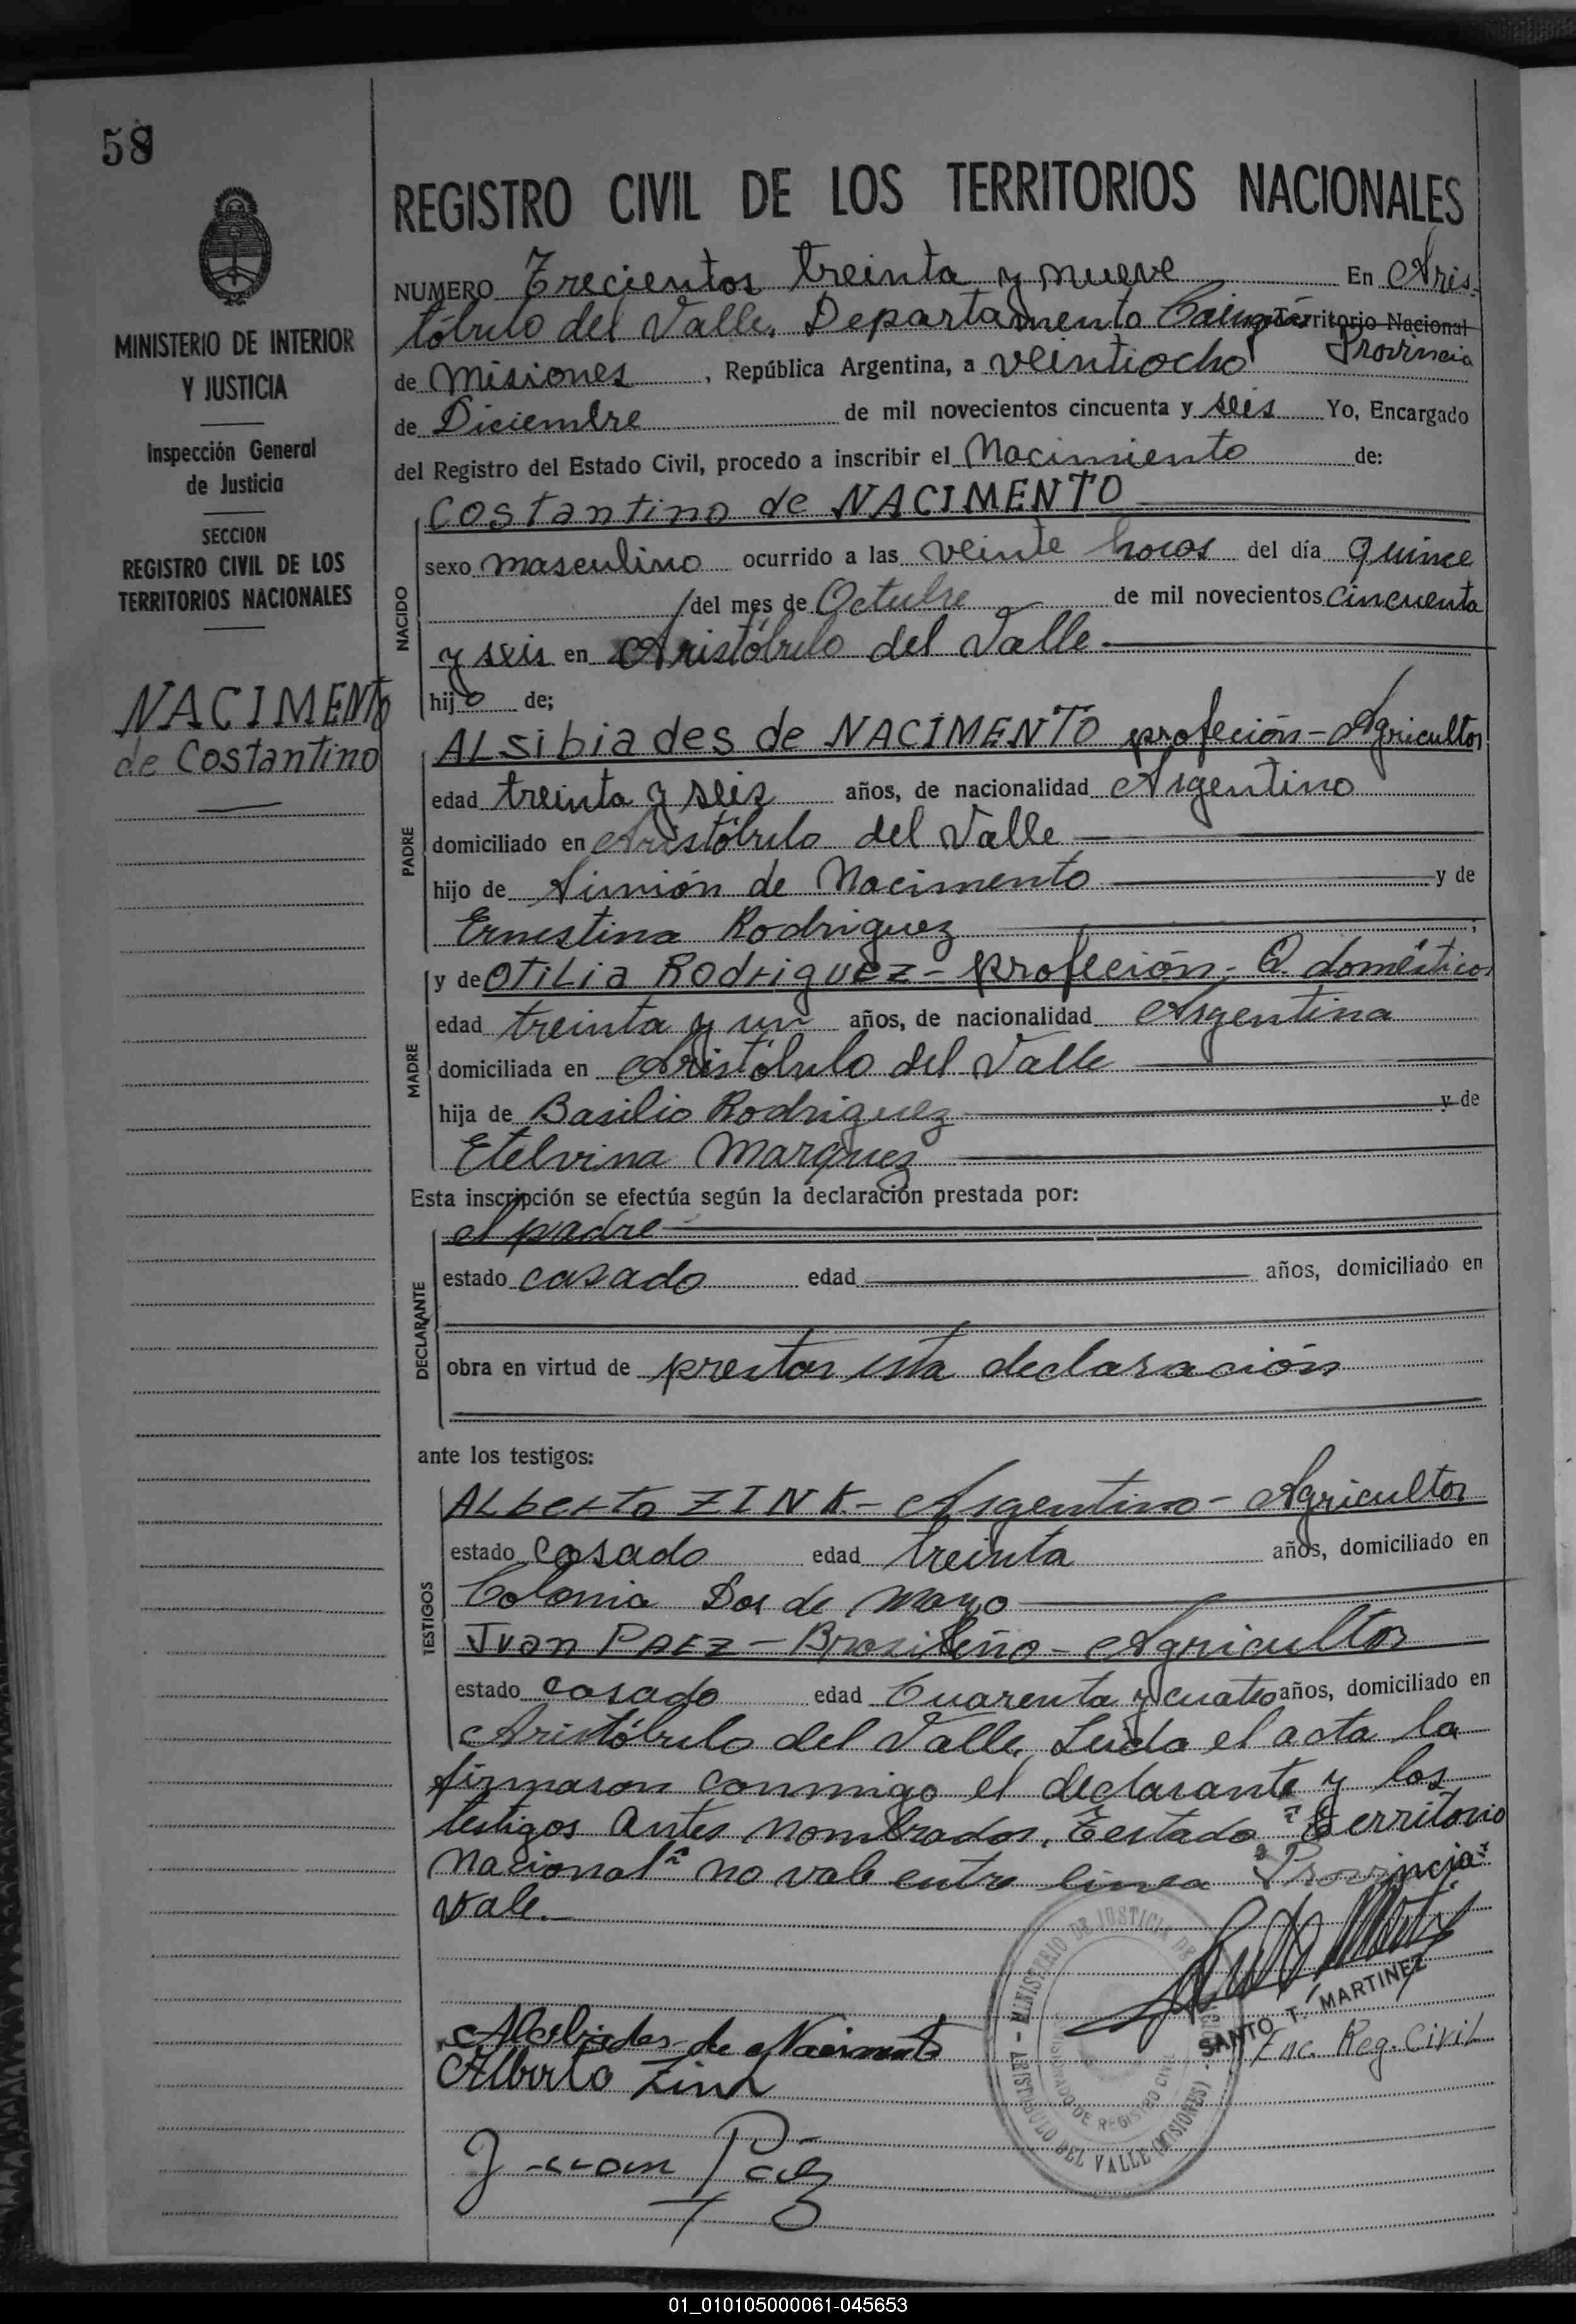 58
MINISTERIO DE INTERIOR
Y JUSTICIA
Inspección General
de Justicia
SECCION
REGISTRO CIVIL DE LOS
TERRITORIOS NACIONALES
NACIMENTO
de Costantino
REGISTRO CIVIL DE LOS TERRITORIOS NACIONALES
NUMERO Trecientos treinta y nueve En Aris-
tóbulo del Valle, Departamento Cainguás Territorio Nacional
Provincia
de Misiones, República Argentina, a veintiocho
de Diciembre de mil novecientos cincuenta y seis Yo, Encargado
del Registro del Estado Civil, procedo a inscribir el Nacimiento de:
NACIDO
Costantino de NACIMENTO
sexo masculino ocurrido a las veinte horas del día quince
del mes de Octubre de mil novecientos cincuenta
y seis en Aristóbulo del Valle
hijo de;
PADRE
ALsibiades de NACIMENTO profeción-Agricultor
edad treinta y seis años, de nacionalidad Argentino
domiciliado en Aristóbulo del Valle
hijo de Simión de Nacimento y de
Ernestina Rodriguez;
MADRE
y de OTILIa Rodriguez- profeción- Q. domésticos
edad treinta y un años, de nacionalidad Argentina
domiciliada en Aristóbulo del Valle
hija de Basilio Rodriguez y de
Etelvina Marquez
Esta inscripción se efectúa según la declaración prestada por:
DECLARANTE
el padre
estado casado edad años, domiciliado en
obra en virtud de prestar esta declaración
ante los testigos:
TESTIGOS
ALberto ZINK- Argentino- Agricultor
estado casado edad treinta años, domiciliado en
Colonia Dos de Mayo
Juan PAEZ- Brasileño- Agricultor
estado casado edad Cuarenta y cuatro años, domiciliado en
Aristóbulo del Valle, Leida el acta la
firmaron conmigo el declarante y los
testigos antes nombrados, Testado "Territorio
Nacional" no vale entre linea "Provincia"
vale.-
MINISTERIO DE JUSTICIA DE
ARISTOBULO DEL VALLE (MISIONES)
DE REGISTRO CIVIL
SANTO T. MARTINEZ
Enc. Reg. Civil
Alcibiades de Nacimento
Alberto Zink
Juan Páez
01_010105000061-045653